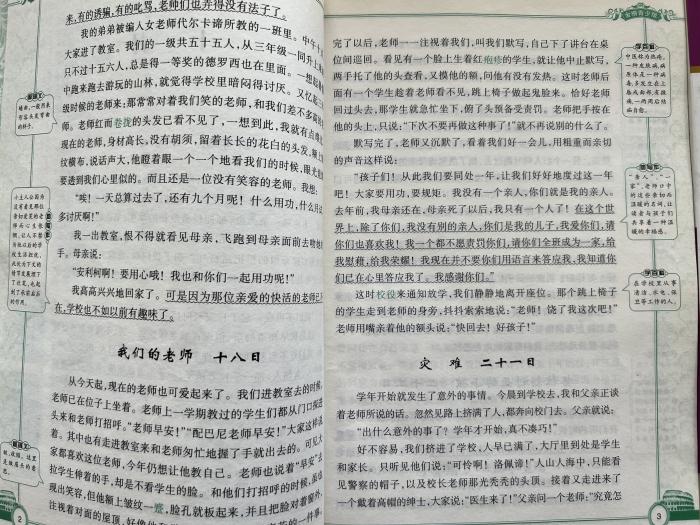 来，有的诱骗，有的叱骂，老师们也弄得没有法子了。
我的弟弟被编入女老师代尔卡谛所教的一班里。
大家进了教室。我们的一级共五十五人，从三年级一同升上
只不过十五六人，总是得一等奖的德罗西也在里面。一想起
中跑来跑去游玩的山林，就觉得学校里暗闷得讨厌。又忆起
级时候的老师来：那常常对着我们笑的老师，和我们差不多
的老师。老师红而卷拢的头发已看不见了，一想到此，我就有点
现在的老师，身材高长，没有胡须，留着长长的花白的头发，额上
纹横布，说话声大，他瞪着眼一个一个地看我们的时候，眼光
要透到我们心里似的。而且还是一位没有笑容的老师。我想：
“唉！一天总算过去了，还有九个月呢！什么用功，什么月
多讨厌啊！”
我一出教室，恨不得就看见母亲，飞跑到母亲面前去吻
手。母亲说：
“安利柯啊！要用心哦！我也和你们一起用功呢！”
我高高兴兴地回家了。可是因为那位亲爱的快活的老师已
在，学校也不如以前有趣味了。
我们的老师 十八日
从今天起，现在的老师也可爱起来了。我们进教室去的时候，
老师已在位子上坐着。老师上一学期教过的学生们都从门口探进
头来和老师打招呼。“老师早安！”“配巴尼老师早安！”大家这样说
着。其中也有走进教室来和老师匆忙地握了手就出去的。可见大
家都喜欢这老师，今年仍想让他教自己。老师也说着“早安”去
拉学生伸着的手，却是不看学生的脸。和他们打招呼的时候，虽也
现出笑容，但他额上皱纹一蹙，脸孔就板起来，并且把脸对着窗外，
注视着对面的屋顶，
2
完了以后，老师一一注视着我们，叫我们默写，自己下了讲台在桌
位间巡回。看见有一个脸上生着红疱疹的学生，就让他中止默写，
两手托了他的头查看，又摸他的额，问他有没有发热。这时老师后
面有一个学生趁着老师看不见，跳上椅子做起鬼脸来。恰好老师
回过头去，那学生就急忙坐下，俯了头预备受责罚。老师把手按在
他的头上，只说：“下次不要再做这种事了！”就不再说别的什么了。
默写完了，老师又沉默了，看着我们好一会儿，用粗重而亲切
的声音这样说：
“孩子们！从此我们要同处一年，让我们好好地度过这一年
吧！大家要用功，要规矩。我没有一个亲人，你们就是我的亲人。
去年前，我母亲还在，母亲死了以后，我只有一个人了！在这个世
界上，除了你们，我没有别的亲人，你们是我的儿子，我爱你们，请
你们也喜欢我！我一个都不愿责罚你们，请你们全班成为一家，给
我慰藉，给我荣耀！我现在并不要你们用语言来答应我，我知道你
们已在心里答应我了。我感谢你们。”
这时校役来通知放学，我们静静地离开座位。那个跳上椅子
的学生走到老师的身旁，抖抖索索地说：“老师！饶了我这次吧！”
老师用嘴亲着他的额头说：“快回去！好孩子！”
灾难 二十一日
学年开始就发生了意外的事情。今晨到学校去，我和父亲正谈
着老师所说的话。忽然见路上挤满了人，都奔向校门去。父亲就说：
“出什么意外的事了？学年才开始，真不凑巧！”
好不容易，我们挤进了学校，人早已满了，大厅里到处是学生
和家长。只听见他们说：“可怜啊！洛佩谛！”人山人海中，只能看
见警察的帽子，以及校长老师那光秃秃的头顶。接着又走进来了
一个戴着高帽的绅士，大家说：“医生来了！”父亲问一个老师：“究竟怎
3